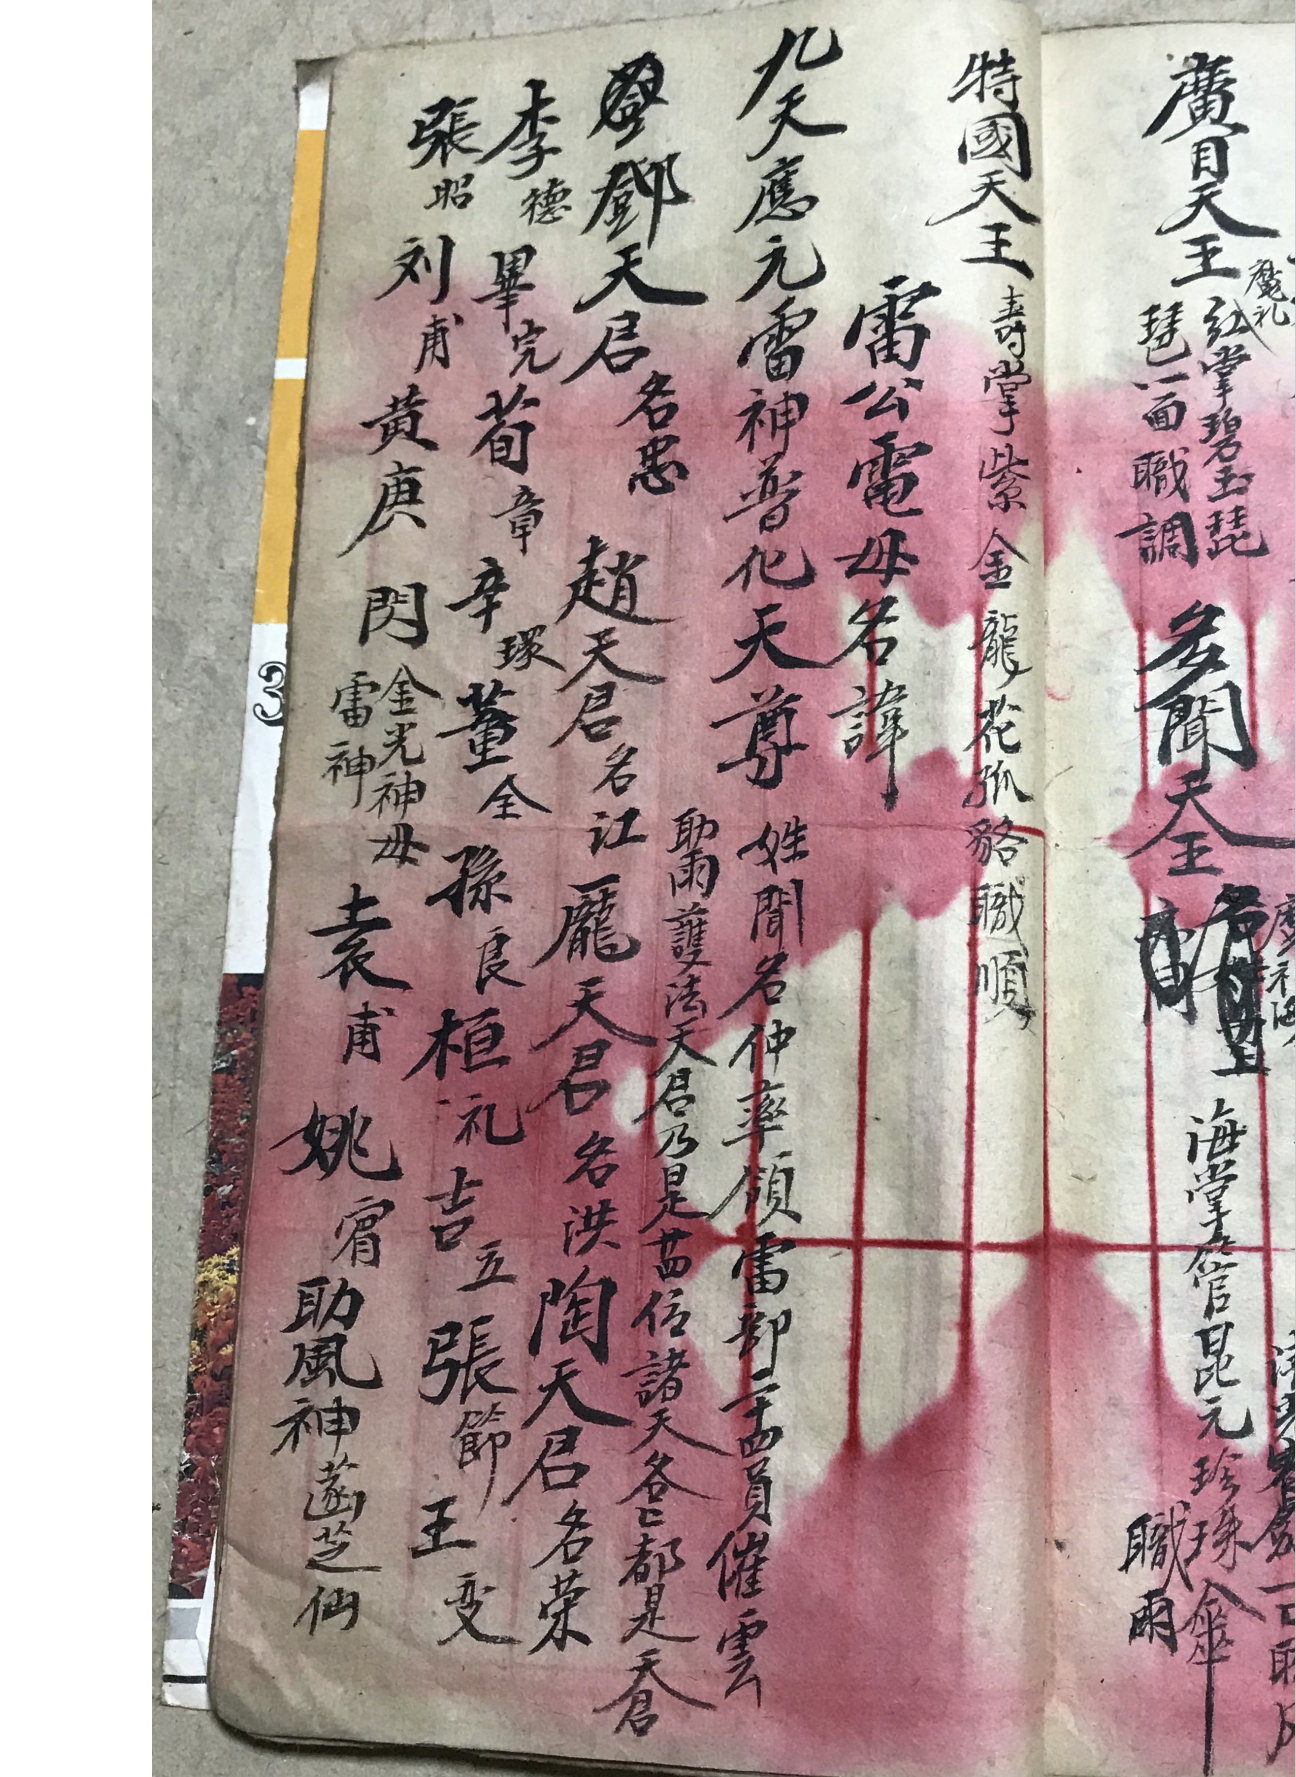 廣目天王
魔礼
紅掌碧玉琵
琶一面職調
多聞天王
海掌管昆元珍珠傘
職雨
特國天王壽掌紫金龍花狐貉職順
雷公電母名諱
九天應元雷神普化天尊姓聞名仲率領雷部二十四員催雲
助雨護法天君乃是
諸天各己都是天君
鄧天君名忠
趙天君名江
龐天君名洪
陶天君名荣
李德
畢完
荀章
辛環
董全
孫良
桓礼
吉立
張節
王变
張昭
刘甫
黄庚
閃金光神母
雷神
袁甫
姚賓
助風神菡芝仙
3